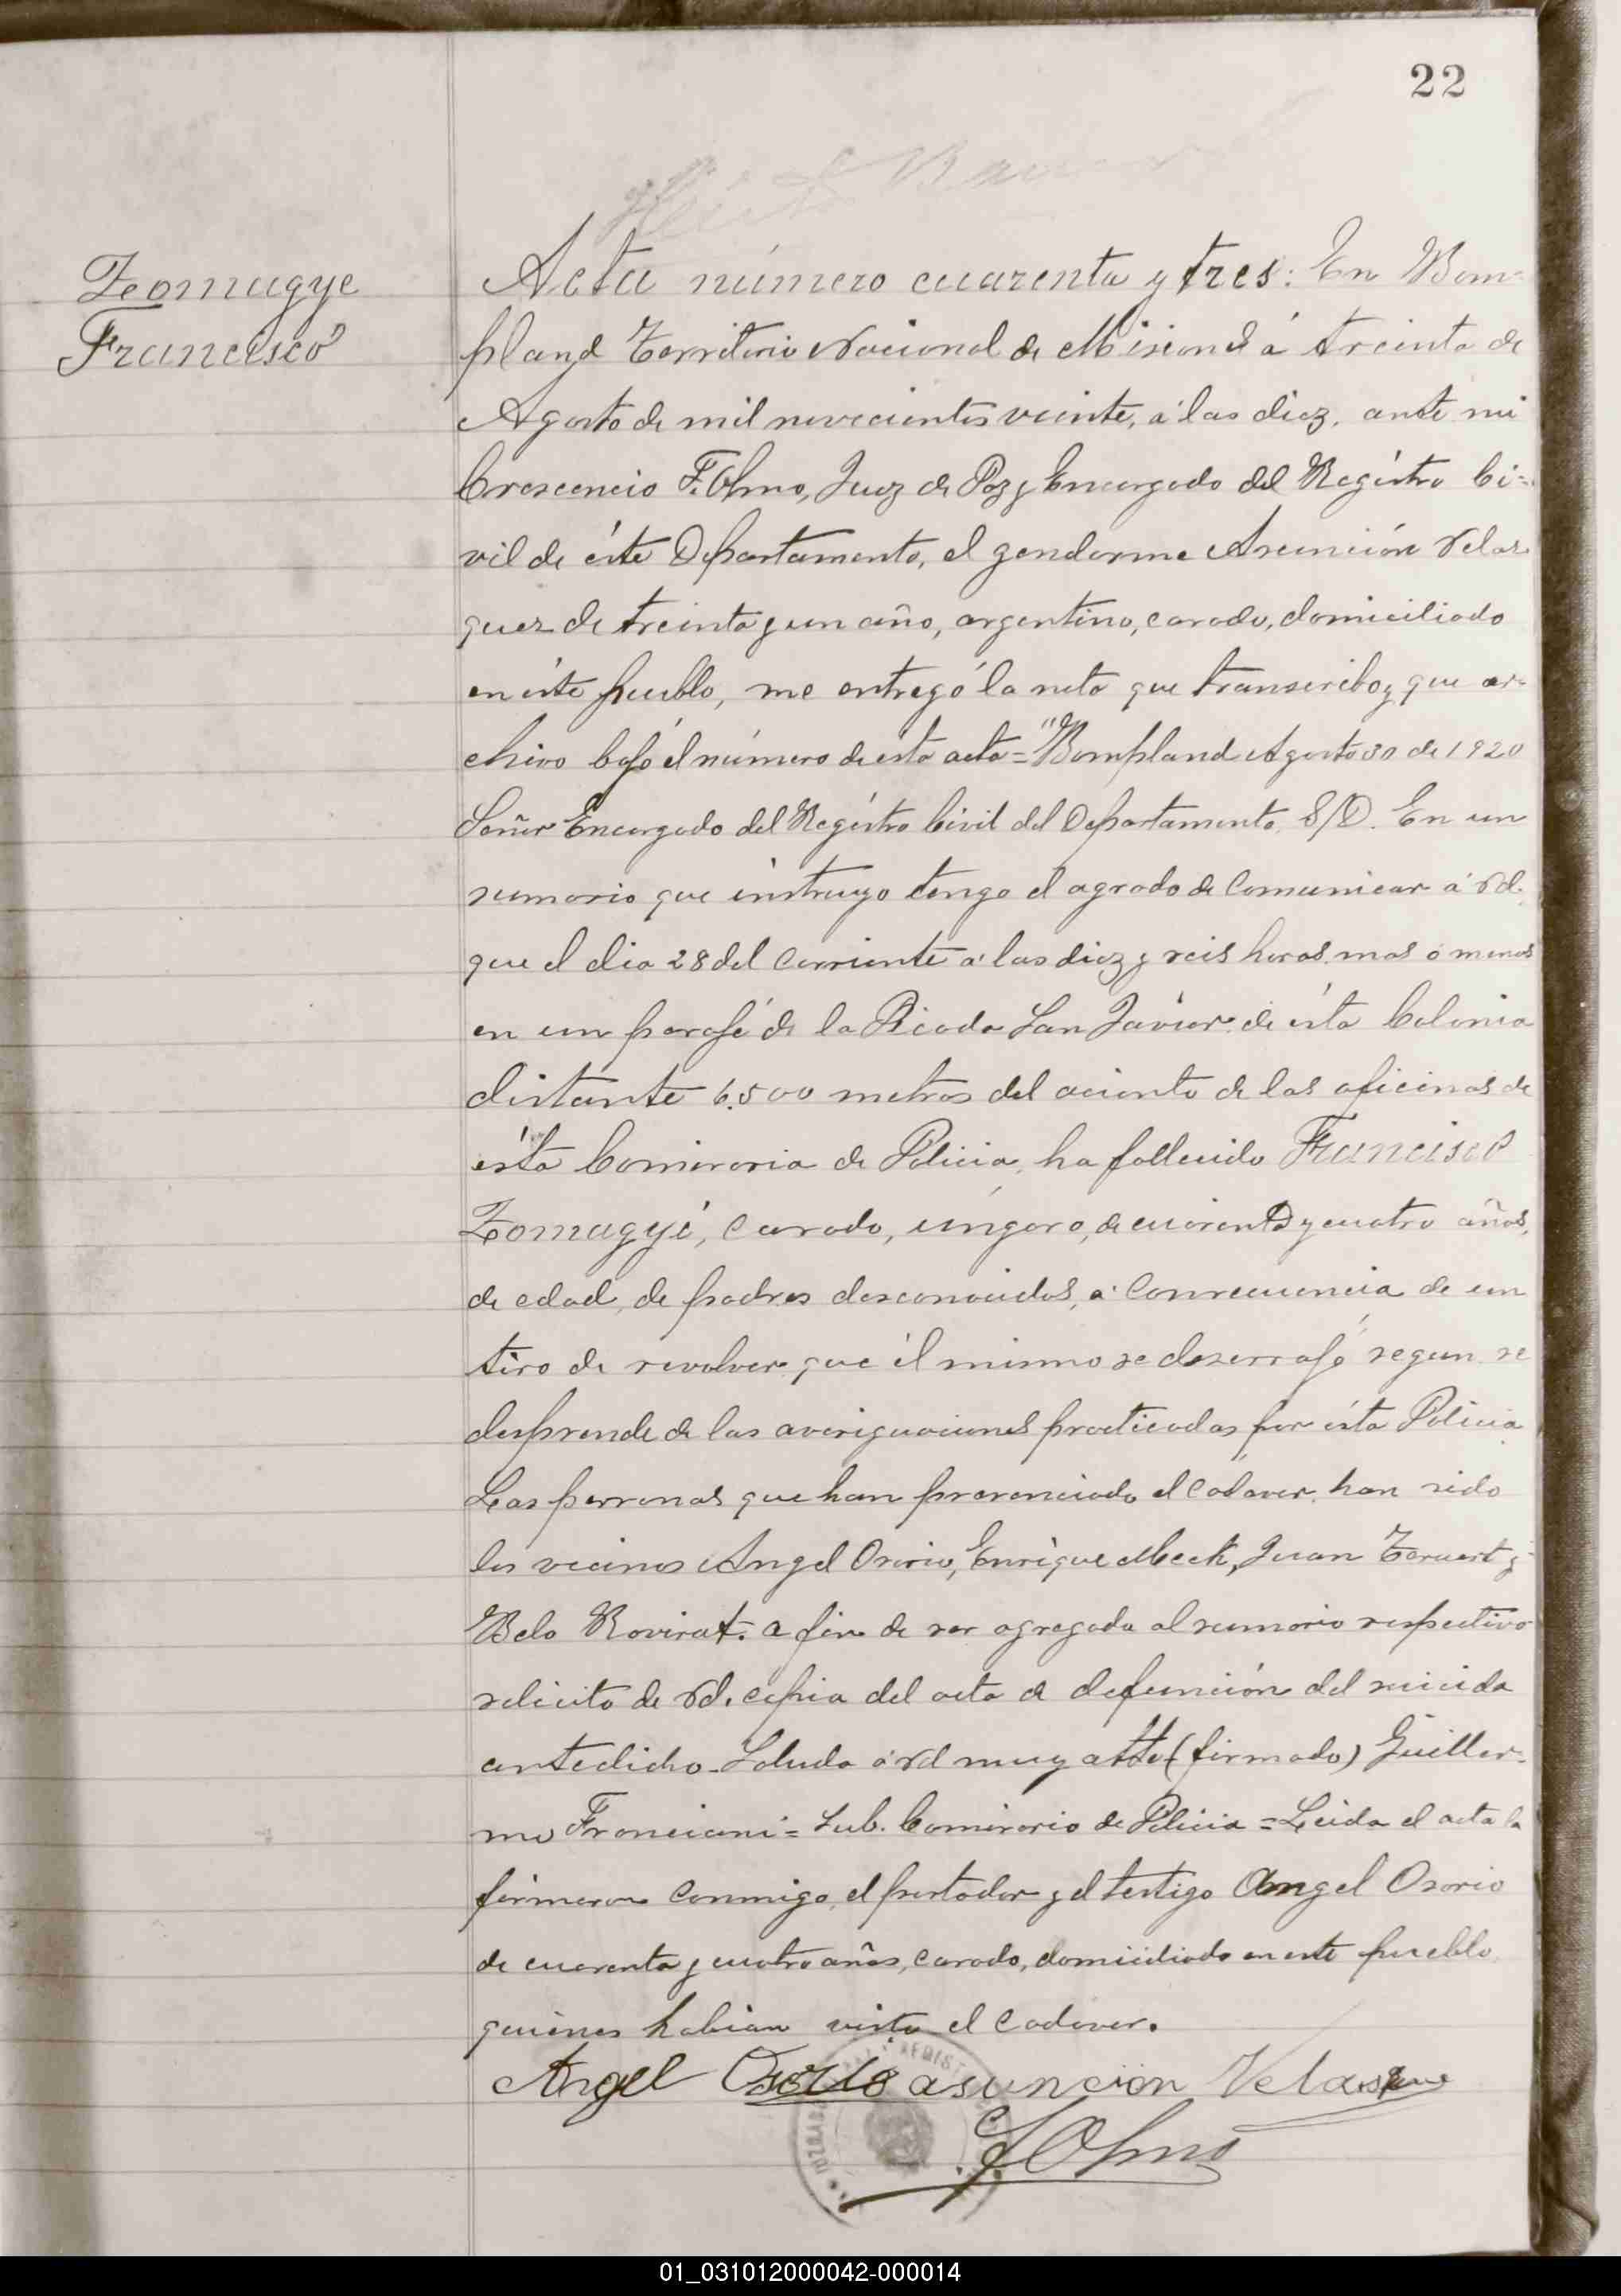 22
Zomagye
Francisco
Acta número cuarenta y tres: En Bom=
pland Territorio Nacional de Misiones á treinta de
Agosto de mil novecientos veinte, á las diez, ante mi
Crescencio F. Olmo, Juez de Paz y Encargado del Registro Ci=
vil de éste Departamento, el gendarme Asunción Velas
quez de treinta y un año, argentino, casado, domiciliado
en éste pueblo, me entregó la nota que transcribo y que ar=
chivo bajo el número de esta acta = "Bompland Agosto 30 de 1920
Señor Encargado del Registro Civil del Departamento. S/D. En un
sumario que instruyo tengo el agrado de comunicar á Vd.
que el dia 28 del corriente á las diez y seis horas mas o menos
en un paraje de la Picada San Javier de ésta Colonia
distante 6.500 metros del aciento de las oficinas de
ésta Comisaria de Policia, ha fallecido Francisco
Zomagyé, casado, úngaro, de cuarenta y cuatro años,
de edad, de padres desconocidos, á consecuencia de un
tiro de revolver que él mismo se deserrajó segun se
desprende de las averiguaciones practicadas por ésta Policia
Las personas que han presenciado el cadaver han sido
los vecinos Angel Osorio, Enrique Meck, Juan y
Belo Rovirat. a fin de ser agregada al sumario respectivo
solicito de Vd. copia del acta de defunción del suicida
antedicho. Saluda á Vd muy atte (firmado) Guiller=
mo Franciani = Sub. Comisario de Policia = Leida el acta la
firmaron conmigo, el portador y el testigo Angel Osorio
de cuarenta y cuatro años, casado, domiciliado en este pueblo
quienes habian visto el cadaver.
Angel Osorio asuncion Velasque
F Olmo
01_031012000042-000014